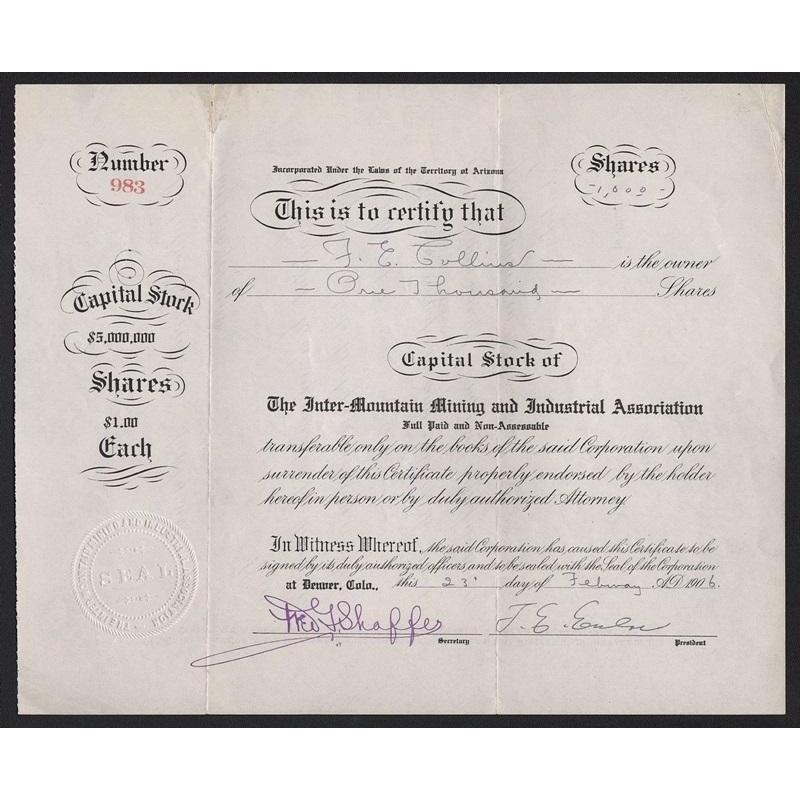 Number
983
Incorporated Under the Laws of the Territory of Arizona
Shares
-1,000-
This is to certify that
— F. E. Collins — is the owner
of — One Thousand — Shares
Capital Stock
$5,000,000
Shares
$1.00
Each
Capital Stock of
The Inter-Mountain Mining and Industrial Association
Full Paid and Non-Assessable
transferable only on the books of the said Corporation upon
surrender of this Certificate properly endorsed by the holder
hereof in person or by duly authorized Attorney
In Witness Whereof, the said Corporation has caused this Certificate to be
signed by its duly authorized officers and to be sealed with the Seal of the Corporation
at Denver, Colo., this 23' day of February A.D. 1906.
Geo F. Shaffer
Secretary
President
SEAL